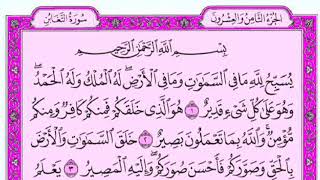 الجزء الثامن والعشرون
سورة التغابن
بِسْمِ اللَّهِ الرَّحْمَٰنِ الرَّحِيمِ
يُسَبِّحُ لِلَّهِ مَا فِي السَّمَٰوَٰتِ وَمَا فِي الْأَرْضِ ۖ لَهُ الْمُلْكُ وَلَهُ الْحَمْدُ ۖ
وَهُوَ عَلَىٰ كُلِّ شَيْءٍ قَدِيرٌ ١ هُوَ الَّذِي خَلَقَكُمْ فَمِنكُمْ كَافِرٌ وَمِنكُم
مُّؤْمِنٌ ۚ وَاللَّهُ بِمَا تَعْمَلُونَ بَصِيرٌ ٢ خَلَقَ السَّمَٰوَٰتِ وَالْأَرْضَ
بِالْحَقِّ وَصَوَّرَكُمْ فَأَحْسَنَ صُوَرَكُمْ ۖ وَإِلَيْهِ الْمَصِيرُ ٣ يَعْلَمُ